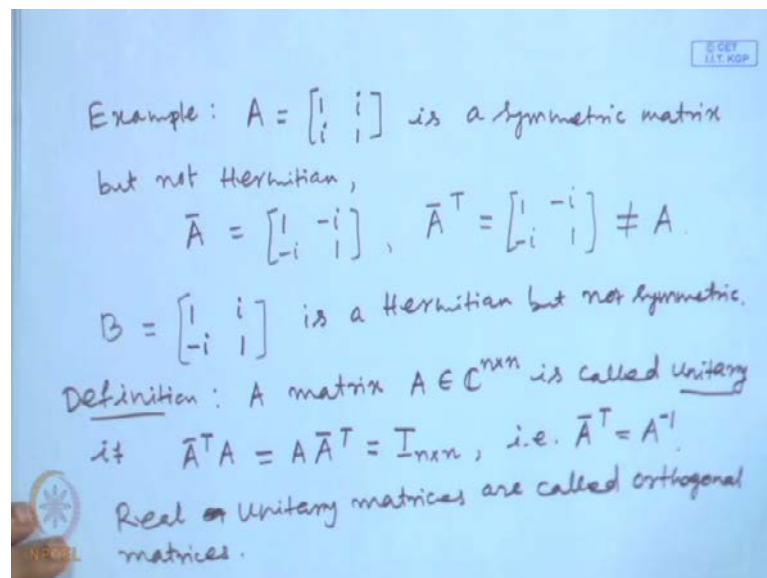 © CET
I.I.T. KGP
Example : A = [1 i; i 1] is a symmetric matrix
but not Hermitian,
Ā = [1 -i; -i 1], Ā^T = [1 -i; -i 1] ≠ A.
B = [1 i; -i 1] is a Hermitian but not symmetric.
Definition : A matrix A ∈ ℂ^{n×n} is called unitary
if Ā^T A = A Ā^T = I_{n×n}, i.e. Ā^T = A^{-1}.
Real Unitary matrices are called orthogonal
matrices.
NPTEL